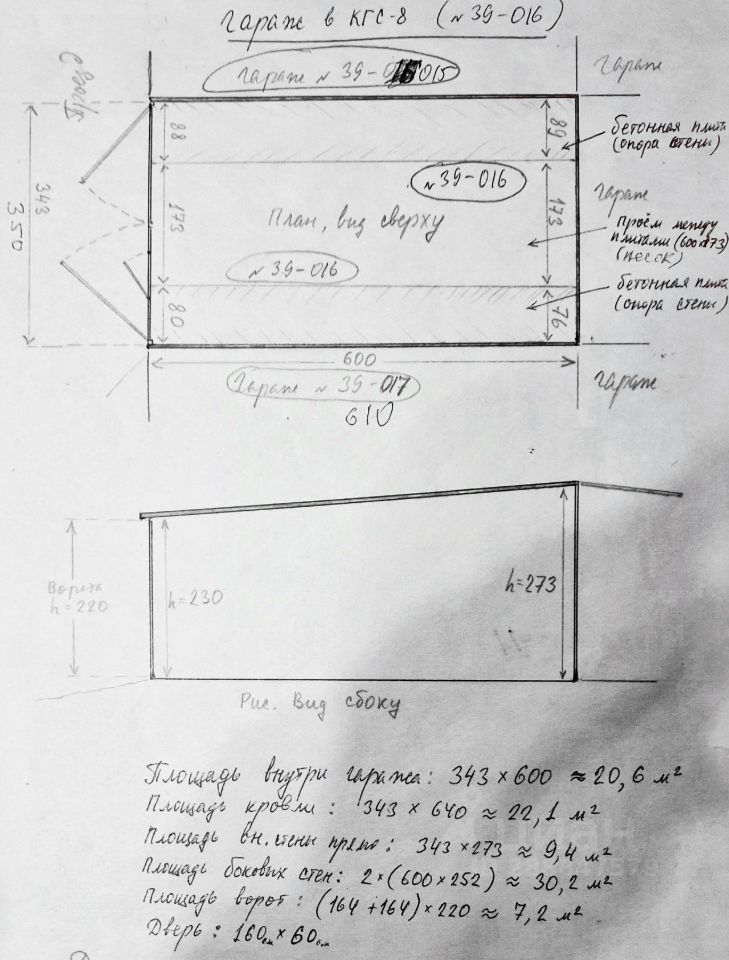 Гараж в КГС-8 (№39-016)
Гараж №39-015
Гараж
88
89
бетонная плита
(опора стены)
№39-016
Гараж
343
350
173
План, вид сверху
173
проём между
плитами (600x173)
(песок)
№39-016
бетонная плита
(опора стены)
80
76
600
Гараж №39-017
Гараж
610
Ворота
h=220
h=230
h=273
Рис. Вид сбоку
Площадь внутри гаража: 343 × 600 ≈ 20,6 м²
Площадь кровли: 343 × 640 ≈ 22,1 м²
Площадь вн. стены прямо: 343 × 273 ≈ 9,4 м²
Площадь боковых стен: 2×(600×252) ≈ 30,2 м²
Площадь ворот: (164+164)×220 ≈ 7,2 м²
Дверь: 160см × 60см